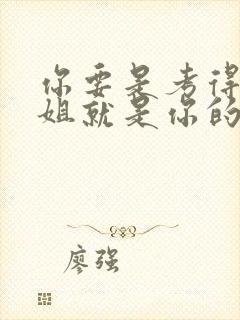 你要是考得
姐就是你的
廖强